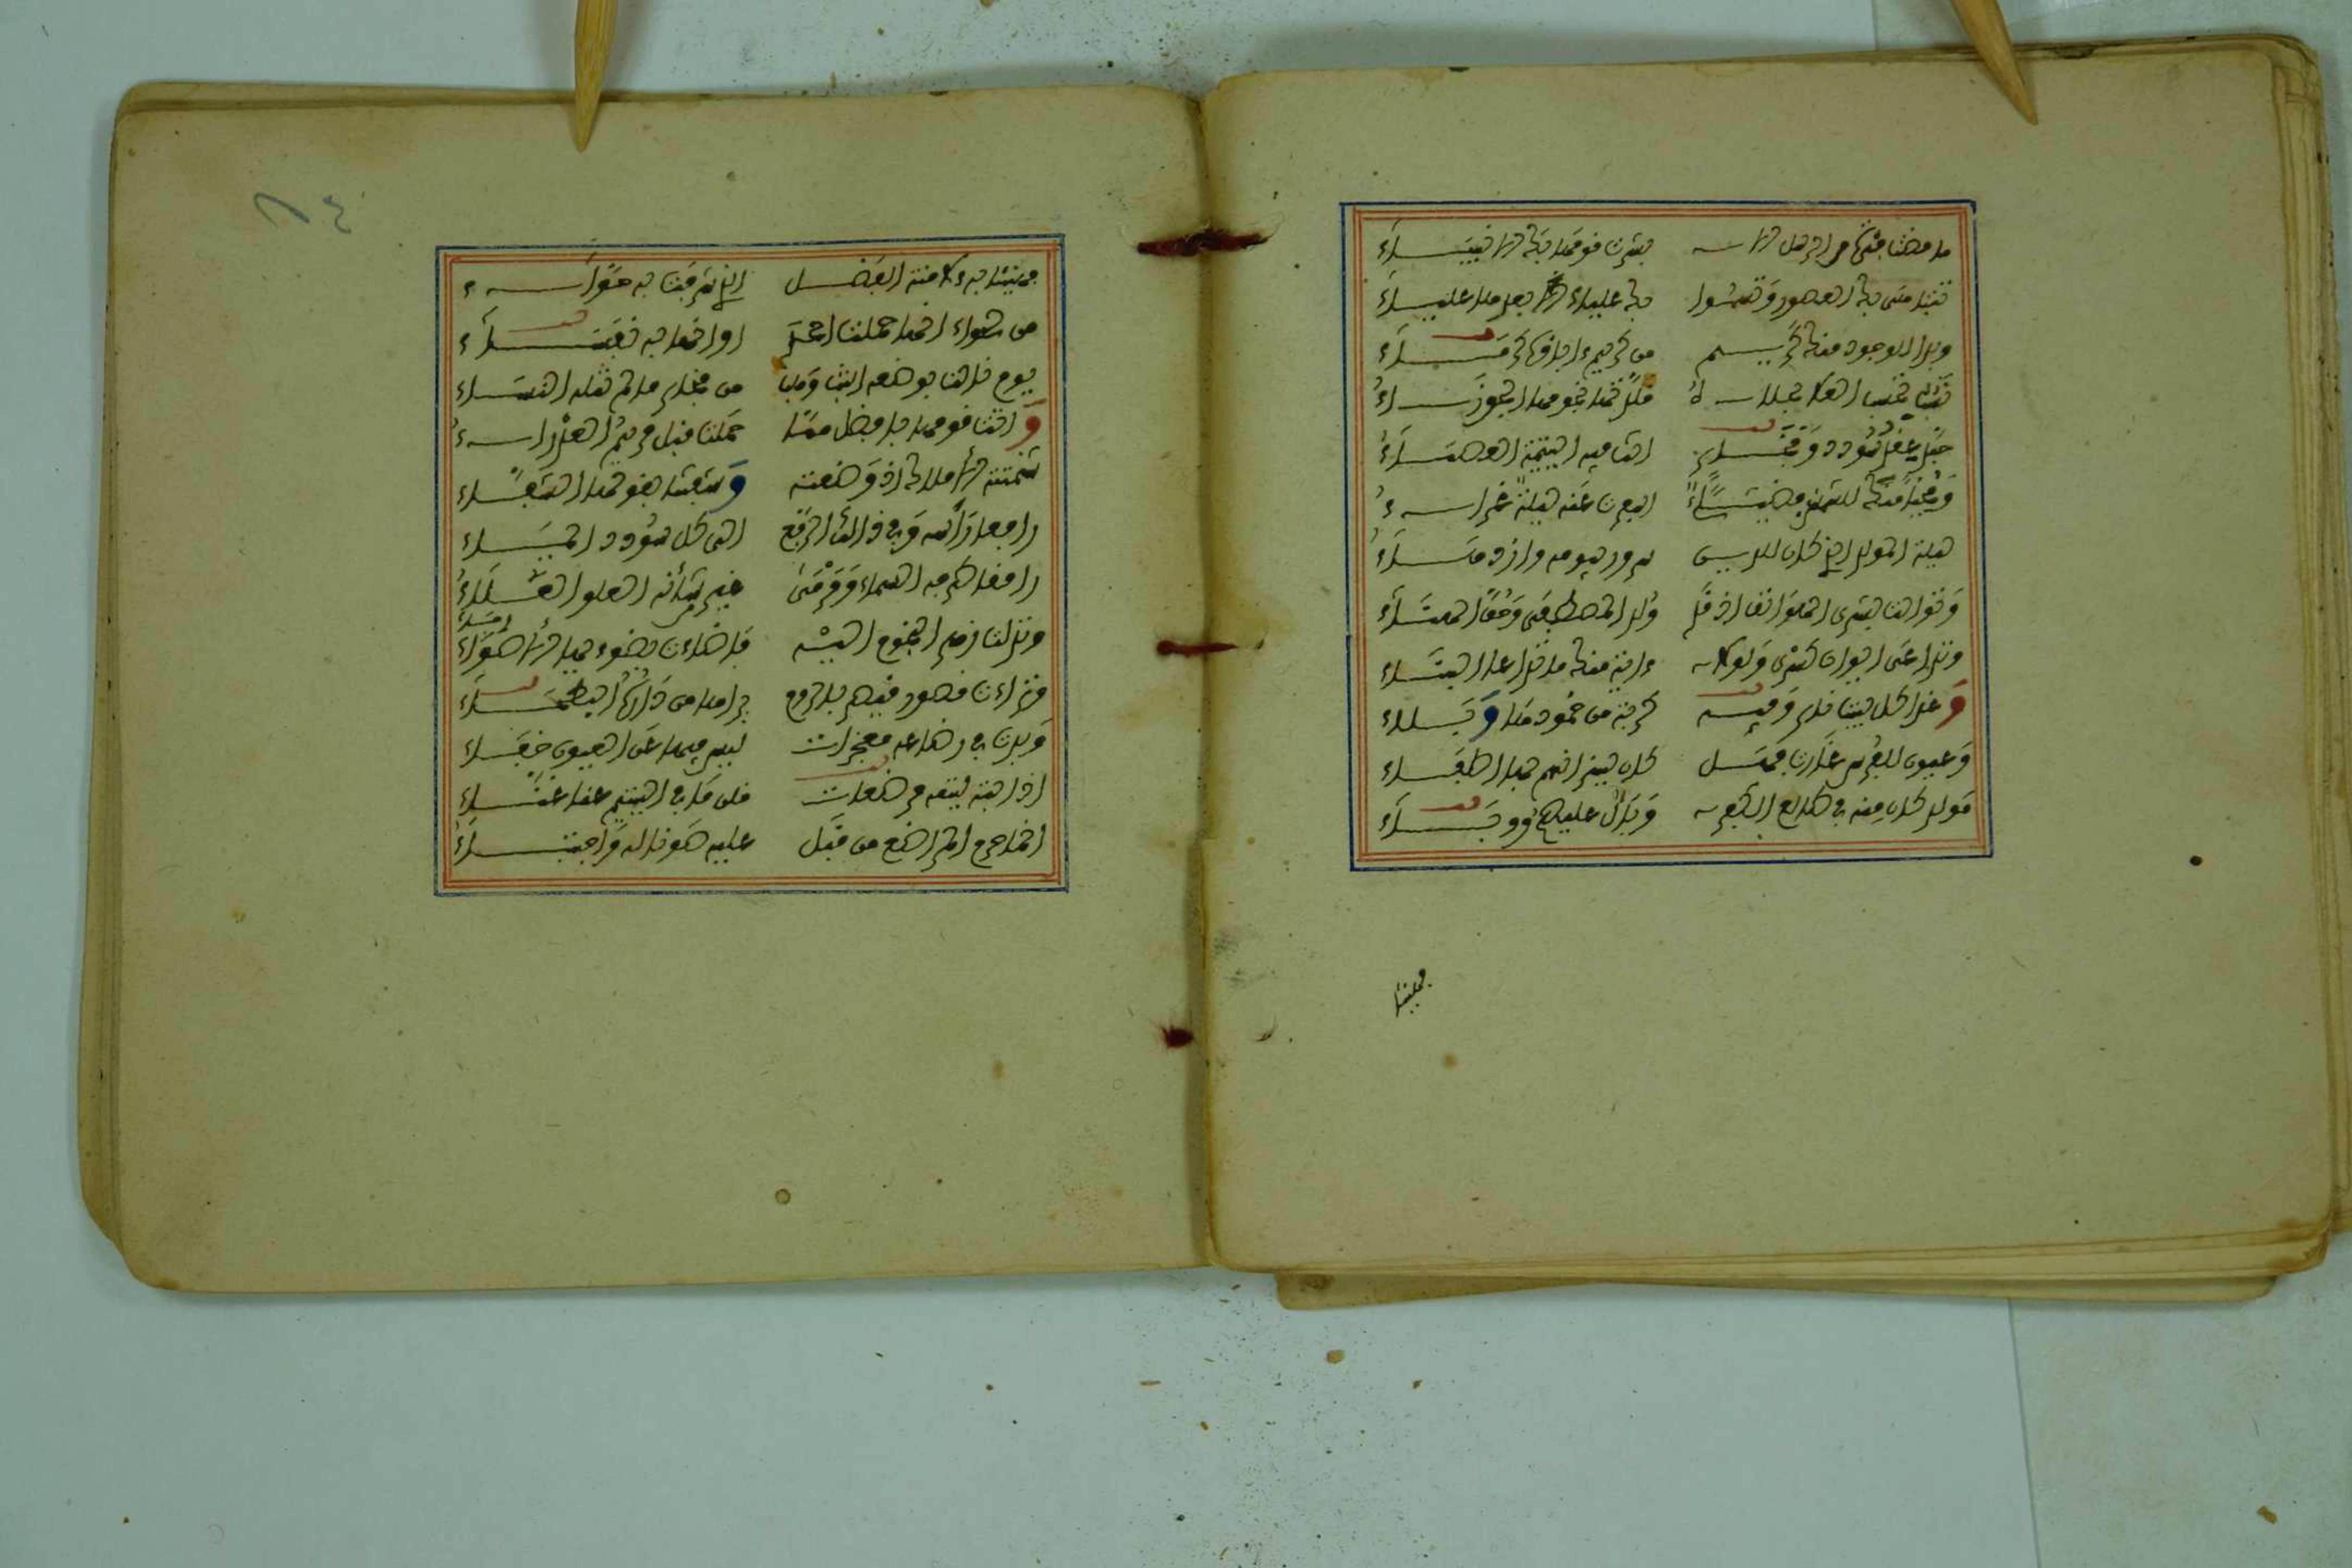 ما مضت فترة من الرسل الا بشرت قومها بك الانبياء
تتباهى بك العصور وتسموا بك علياء بعدها علياء
وبدا للوجود منك كريم من كريم ءاباؤه كرماء
نسب تحسب العلا بحلاه قلدتها نجومها الجوزاء
حبذا عقد سؤدد وفخار انت فيه اليتيمة العصماء
ومحيا منك كالشمس مضيء اسفرت عنه ليلة غراء
ليلة المولد الذي كان للدين سرور بيومه وازدهاء
وتوالت بشرى الهواتف ان قد ولد المصطفى وحق الهناء
وتداعى ايوان كسرى ولولا ءاية منك ما تداعا البناء
وغدا كل بيت نار وفيه كربة من خمودها وبلاء
وعيون للفرس غارت فهل كان لنيرانهم بها اطفاء
مولد كان منه في طالع الكفر وبال عليهم ووباء
فهنيئا
فهنيئا به ءلامنة الفضل الذي شرفت به حواء
من لحواء انها حملت احمد او انها به نفساء
يوم نالت بوضعه ابنت وهب من فخار ما لم تنله النساء
واتت قومها بافضل مما حملت قبل مريم العذراء
شمتته الاملاك اذ وضعته وشفتنا بقولها الشفاء
رافعا رأسه وفي ذلك الرفع الى كل سؤدد ايماء
رامقا طرفه السماء ومرمى عين شأنه العلو العلاء
وتدلت زهر النجوم اليه فاضاءت بضوءها الارجاء
وتراءت قصور قيصر بالروم يراها من داره البطحاء
وبدت في رضاعه معجزات ليس فيها عن العيون خفاء
اذ ابته ليتمه مرضعات قلن ما في اليتيم عنا غناء
انما حرم المراضع من قبل عليه صونا له واجتباء